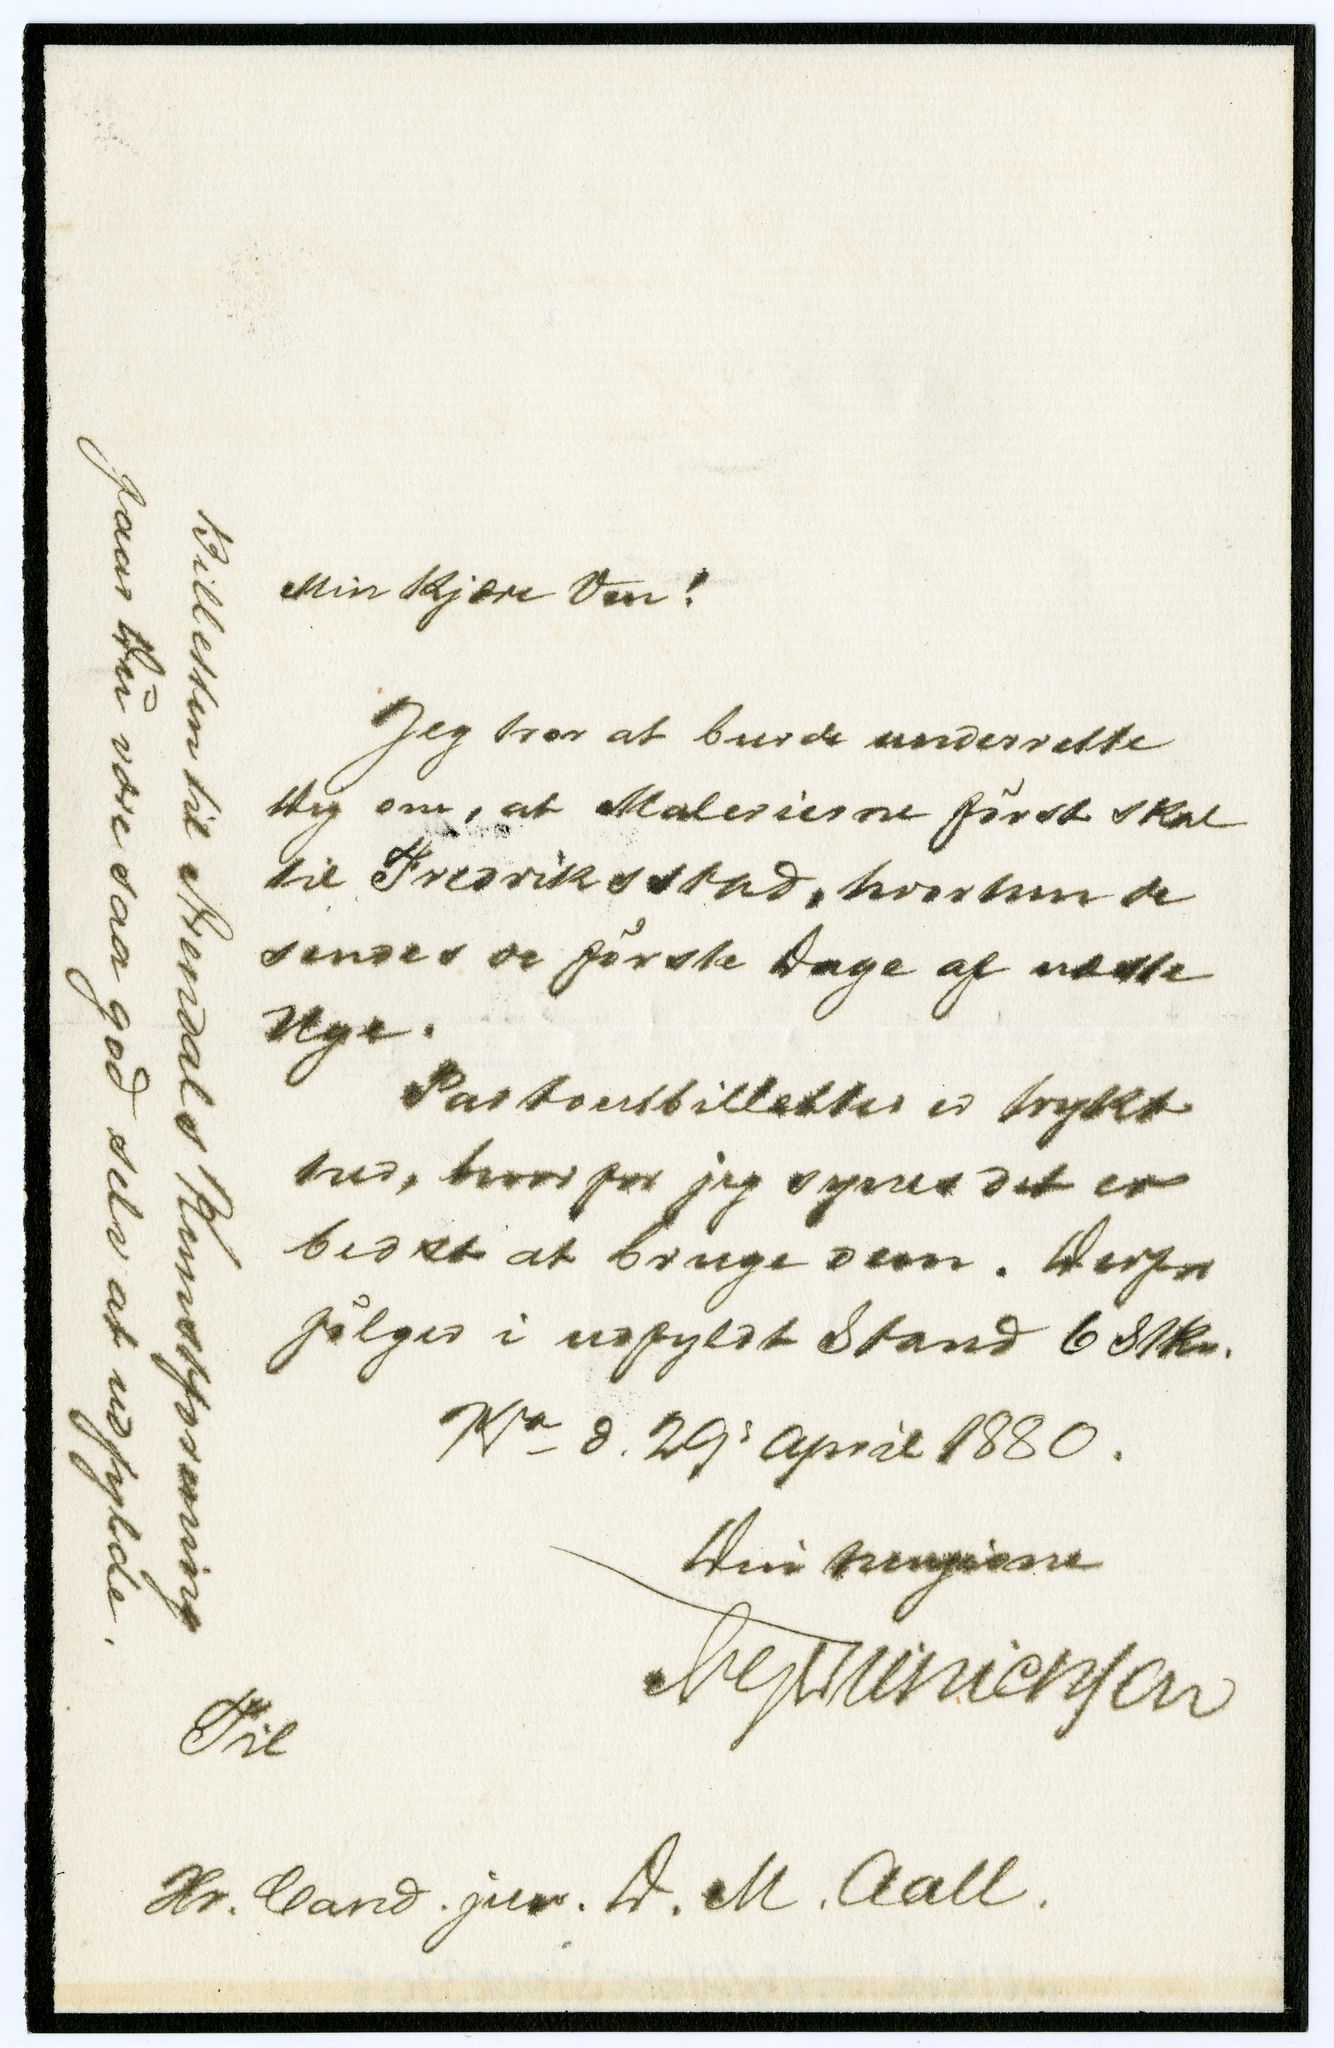 Min Kjære Ven!
Jeg tror at burde underrette
Dig om, at Malerierne først skal
til Fredriksstad, hvorhen de
sendes de første Dage af næste
Uge.
Partoutbilletter er trykt
her, hvorfor jeg synes det er
bedst at bruge dem. Derfor
følger i udfyldt Stand 6 Stkr.
Kra d. 29: April 1880.
Din hengivne
Dietrichson
Til
Hr. Cand. jur. D. M. Aall.
Billetten til Arendals Kunstforening
faar Du være saa god selv at udfylde.